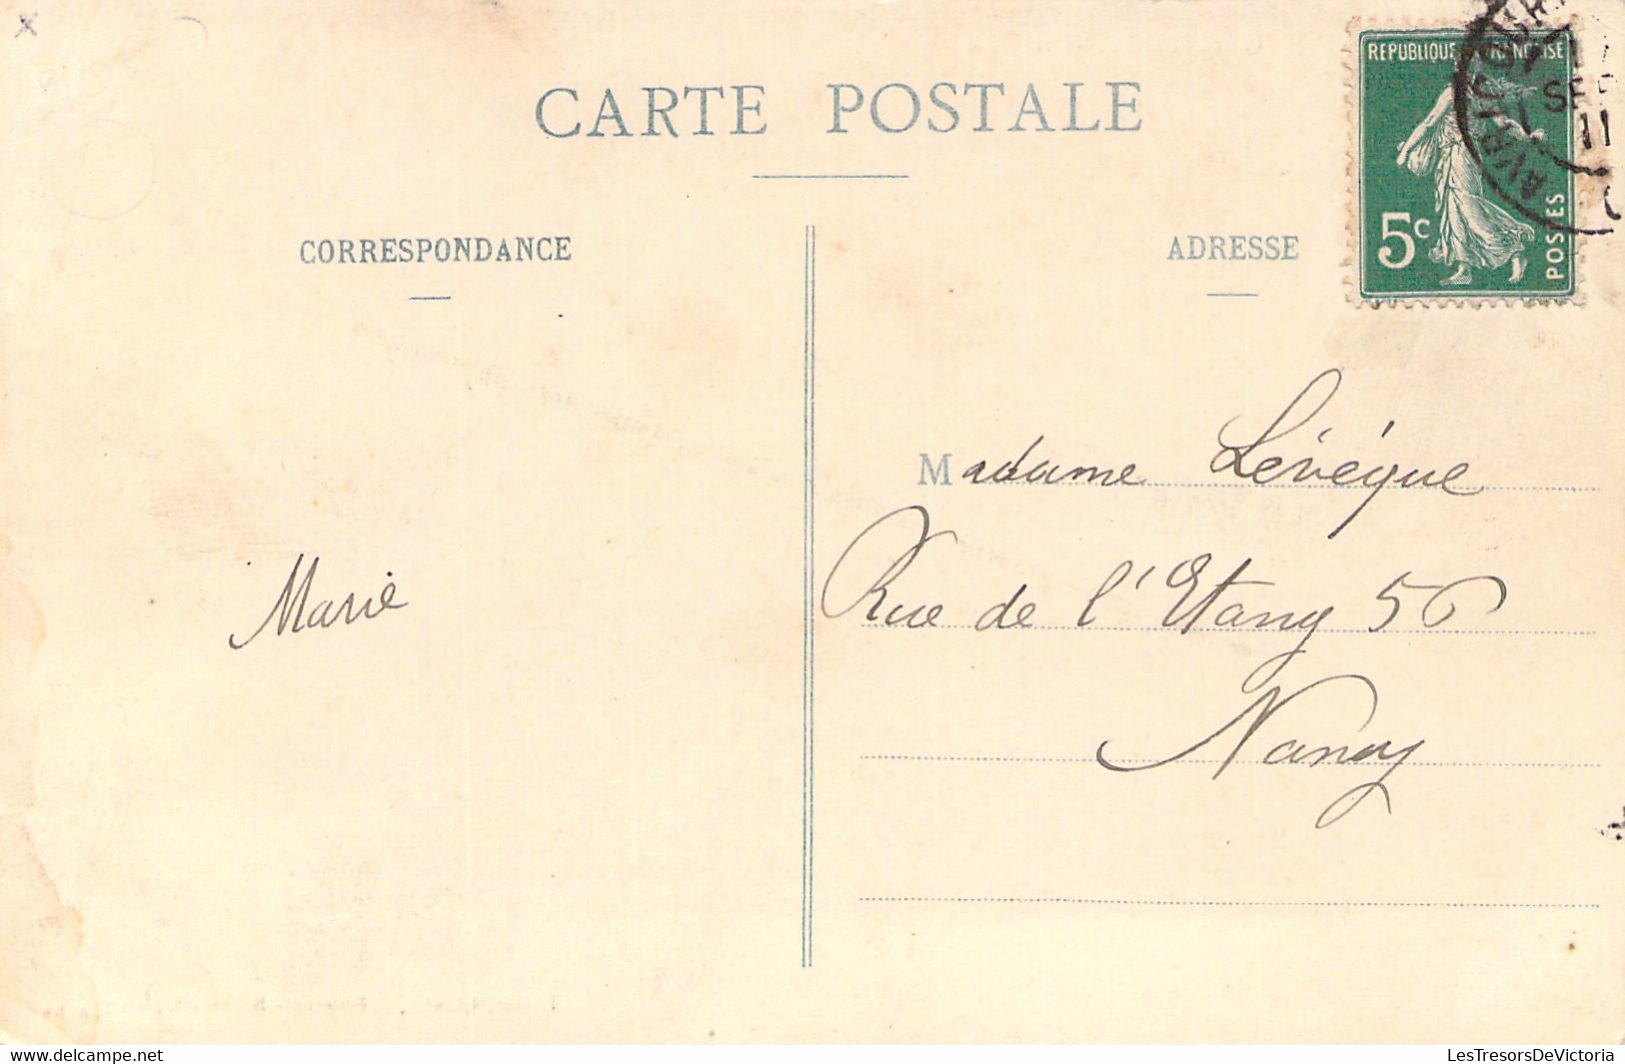 CARTE POSTALE
CORRESPONDANCE
ADRESSE
REPUBLIQUE FRANÇAISE
5c
POSTES
AVRICOURT
11
Madame Lévéque
Rue de l'Etang 56
Nancy
Marie
www.delcampe.net
LesTresorsDeVictoria